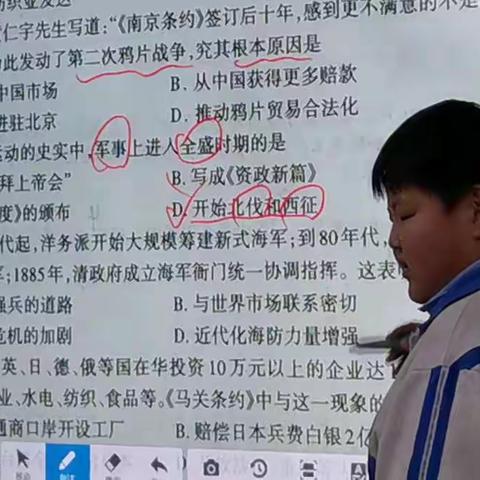 仁宇先生写道:“《南京条约》签订后十年,感到更不满意的不是
此发动了第二次鸦片战争,究其根本原因是
中国市场 B. 从中国获得更多赔款
进驻北京 D. 推动鸦片贸易合法化
运动的史实中,军事上进入全盛时期的是
拜上帝会” B. 写成《资政新篇》
度》的颁布 D. 开始北伐和西征
代起,洋务派开始大规模筹建新式海军;到80年代,
;1885年,清政府成立海军衙门统一协调指挥。这表
强兵的道路 B. 与世界市场联系密切
危机的加剧 D. 近代化海防力量增强
英、日、德、俄等国在华投资10万元以上的企业达
业、水电、纺织、食品等。《马关条约》中与这一现象的
通商口岸开设工厂 B. 赔偿日本兵费白银2亿